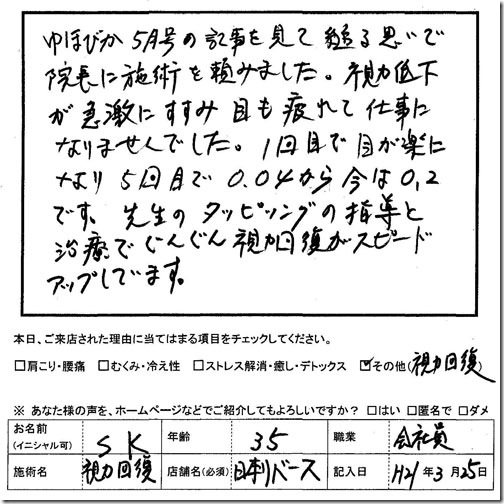 ゆほびか5月号の記事を見て縋る思いで
院長に施術を頼みました。視力低下
が急激にすすみ目も疲れて仕事に
なりませんでした。1回目で目が楽に
なり5回目で0.04から今は0.2
です。先生のタッピングの指導と
治療でぐんぐん視力回復がスピード
アップしています。
本日、ご来店された理由に当てはまる項目をチェックしてください。
□肩こり・腰痛 □むくみ・冷え性 □ストレス解消・癒し・デトックス ☑その他(視力回復)
※ あなた様の声を、ホームページなどでご紹介してもよろしいですか？ □はい □匿名で □ダメ
お名前 (イニシャル可) S K 年齢 35 職業 会社員
施術名 視力回復 店舗名(必須) 日本リバース 記入日 H21年3月25日